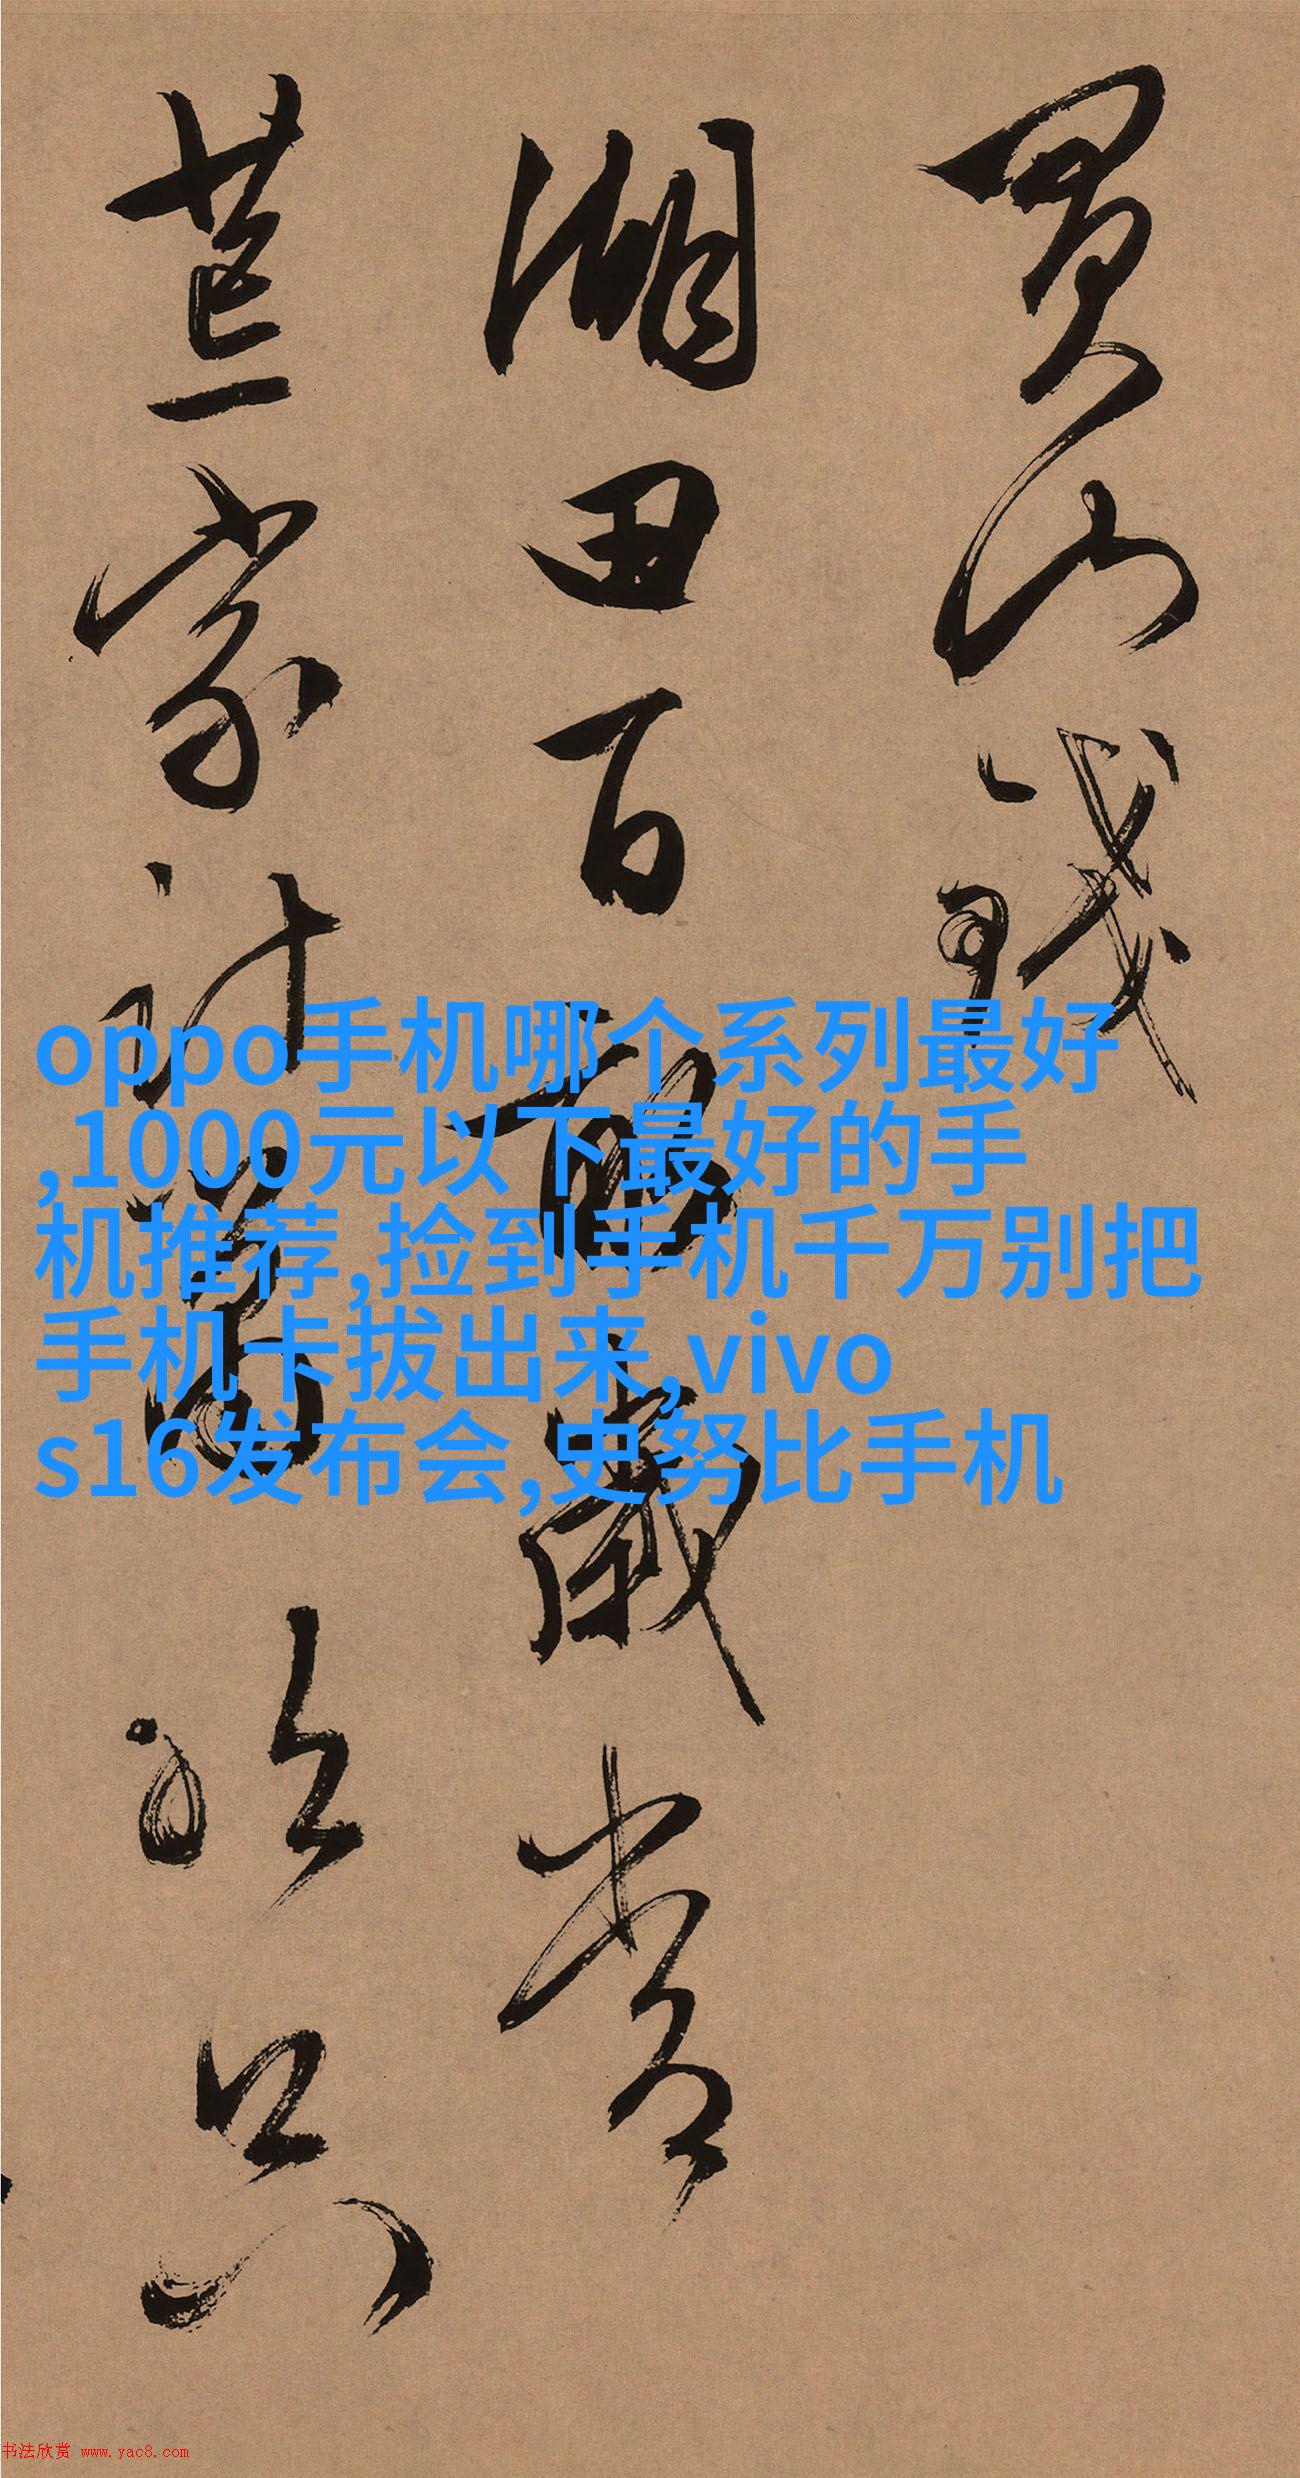 買山錢
湖田百畝歲常
荒一家計蕭然只
oppo手机哪个系列最好
,1000元以下最好的手
机推荐,捡到手机千万别把
手机卡拔出来,vivo
s16发布会,史努比手机
书法欣赏 www.yac8.com